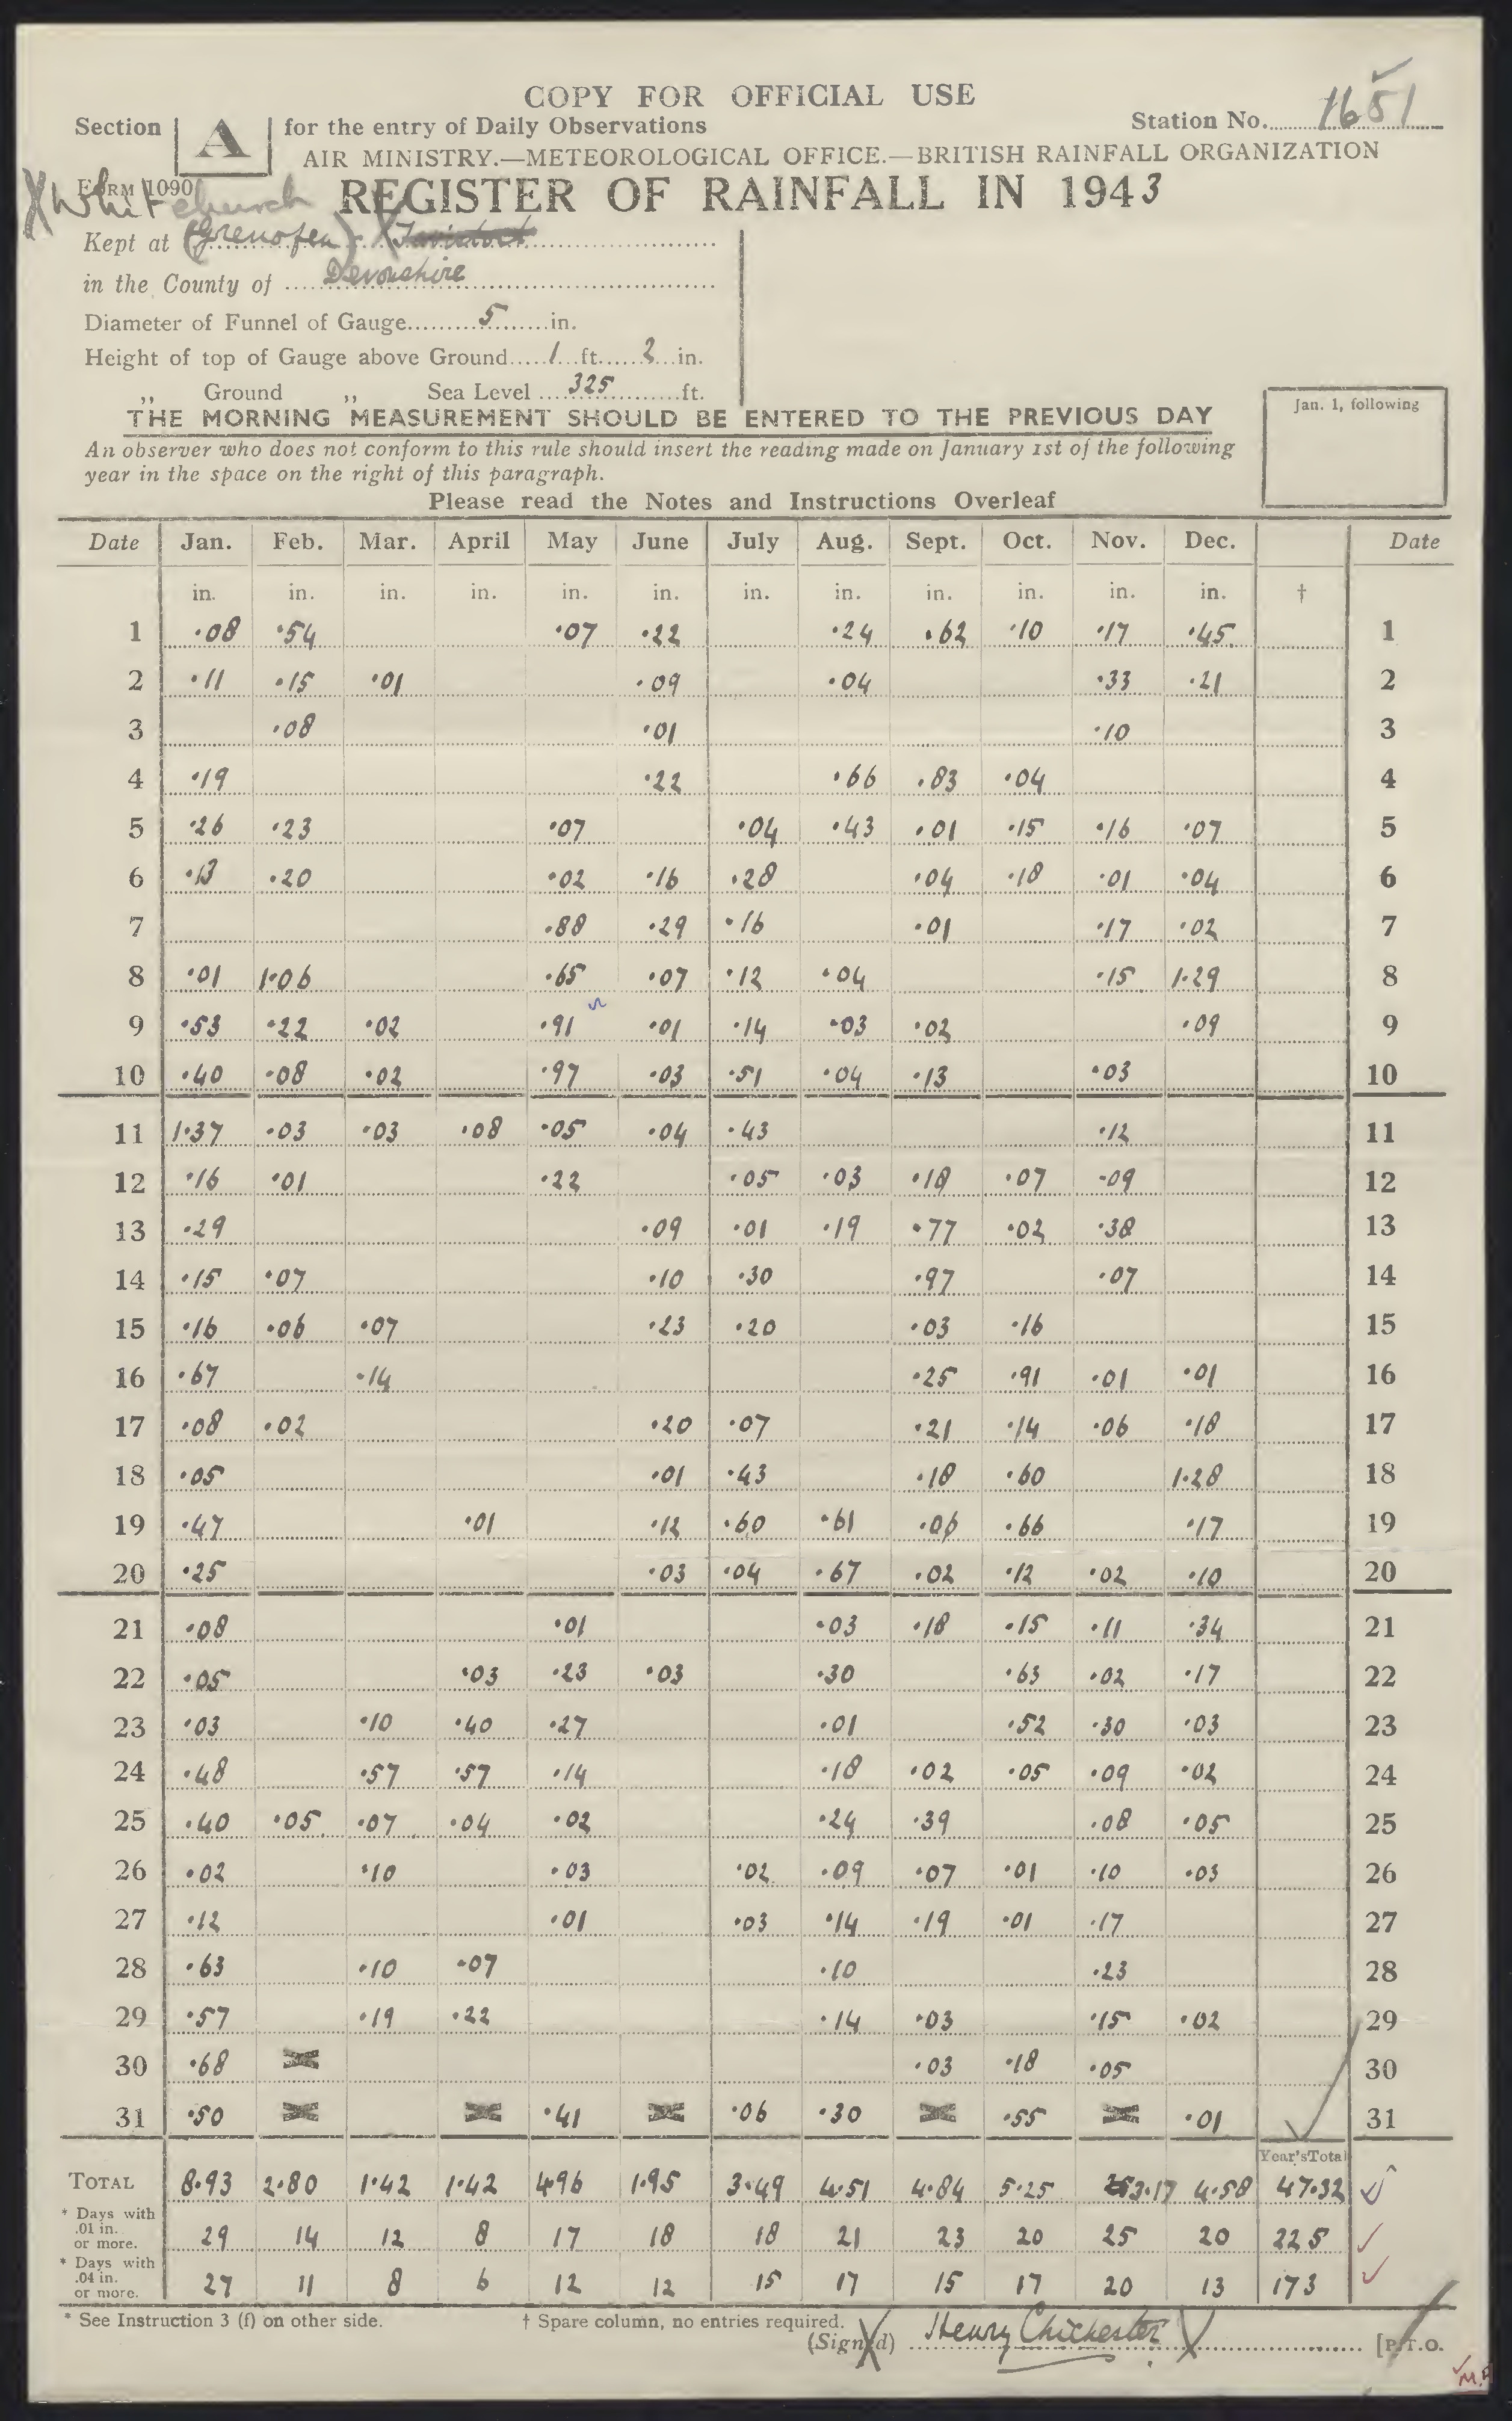 COPY FOR OFFICIAL USE
Station No. 1651
Section A for the entry of Daily Observations
AIR MINISTRY.—METEOROLOGICAL OFFICE.—BRITISH RAINFALL ORGANIZATION
FORM 1090
REGISTER OF RAINFALL IN 1943
X Whitchurch
Kept at (Grenofen) X Tavistock
in the County of Devonshire
Diameter of Funnel of Gauge 5 in.
Height of top of Gauge above Ground 1 ft. 2 in.
,, Ground ,, Sea Level 325 ft.
THE MORNING MEASUREMENT SHOULD BE ENTERED TO THE PREVIOUS DAY
Jan. 1, following
An observer who does not conform to this rule should insert the reading made on January 1st of the following
year in the space on the right of this paragraph.
Please read the Notes and Instructions Overleaf
Date Jan. Feb. Mar. April May June July Aug. Sept. Oct. Nov. Dec. Date
in. in. in. in. in. in. in. in. in. in. in. in. †
1 ·08 ·54 ·07 ·22 ·24 ·62 ·10 ·17 ·45 1
2 ·11 ·15 ·01 ·09 ·04 ·33 ·21 2
3 ·08 ·01 ·10 3
4 ·19 ·22 ·66 ·83 ·04 4
5 ·26 ·23 ·07 ·04 ·43 ·01 ·15 ·16 ·07 5
6 ·13 ·20 ·02 ·16 ·28 ·04 ·18 ·01 ·04 6
7 ·88 ·29 ·16 ·01 ·17 ·02 7
8 ·01 1·06 ·65 ·07 ·12 ·04 ·15 1·29 8
9 ·53 ·22 ·02 ·91 ·01 ·14 ·03 ·02 ·09 9
10 ·40 ·08 ·02 ·97 ·03 ·51 ·04 ·13 ·03 10
11 1·37 ·03 ·03 ·08 ·05 ·04 ·43 ·12 11
12 ·16 ·01 ·22 ·05 ·03 ·18 ·07 ·09 12
13 ·29 ·09 ·01 ·19 ·77 ·02 ·38 13
14 ·15 ·07 ·10 ·30 ·97 ·07 14
15 ·16 ·06 ·07 ·23 ·20 ·03 ·16 15
16 ·67 ·14 ·25 ·91 ·01 ·01 16
17 ·08 ·02 ·20 ·07 ·21 ·14 ·06 ·18 17
18 ·05 ·01 ·43 ·18 ·60 1·28 18
19 ·47 ·01 ·12 ·60 ·61 ·06 ·66 ·17 19
20 ·25 ·03 ·04 ·67 ·02 ·12 ·02 ·10 20
21 ·08 ·01 ·03 ·18 ·15 ·11 ·34 21
22 ·05 ·03 ·23 ·03 ·30 ·63 ·02 ·17 22
23 ·03 ·10 ·40 ·27 ·01 ·52 ·30 ·03 23
24 ·48 ·57 ·57 ·14 ·18 ·02 ·05 ·09 ·02 24
25 ·40 ·05 ·07 ·04 ·02 ·24 ·39 ·08 ·05 25
26 ·02 ·10 ·03 ·02 ·09 ·07 ·01 ·10 ·03 26
27 ·12 ·01 ·03 ·14 ·19 ·01 ·17 27
28 ·63 ·10 ·07 ·10 ·23 28
29 ·57 ·19 ·22 ·14 ·03 ·15 ·02 29
30 ·68 ·03 ·18 ·05 30
31 ·50 ·41 ·06 ·30 ·55 ·01 31
Year's Total
TOTAL 8·93 2·80 1·42 1·42 4·96 1·95 3·49 4·51 4·84 5·25 3·17 4·58 47·32
* Days with .01 in. or more. 29 14 12 8 17 18 18 21 23 20 25 20 225
* Days with .04 in. or more. 27 11 8 6 12 12 15 17 15 17 20 13 173
* See Instruction 3 (f) on other side. † Spare column, no entries required.
(Signed) Henry Chichester [P.T.O.